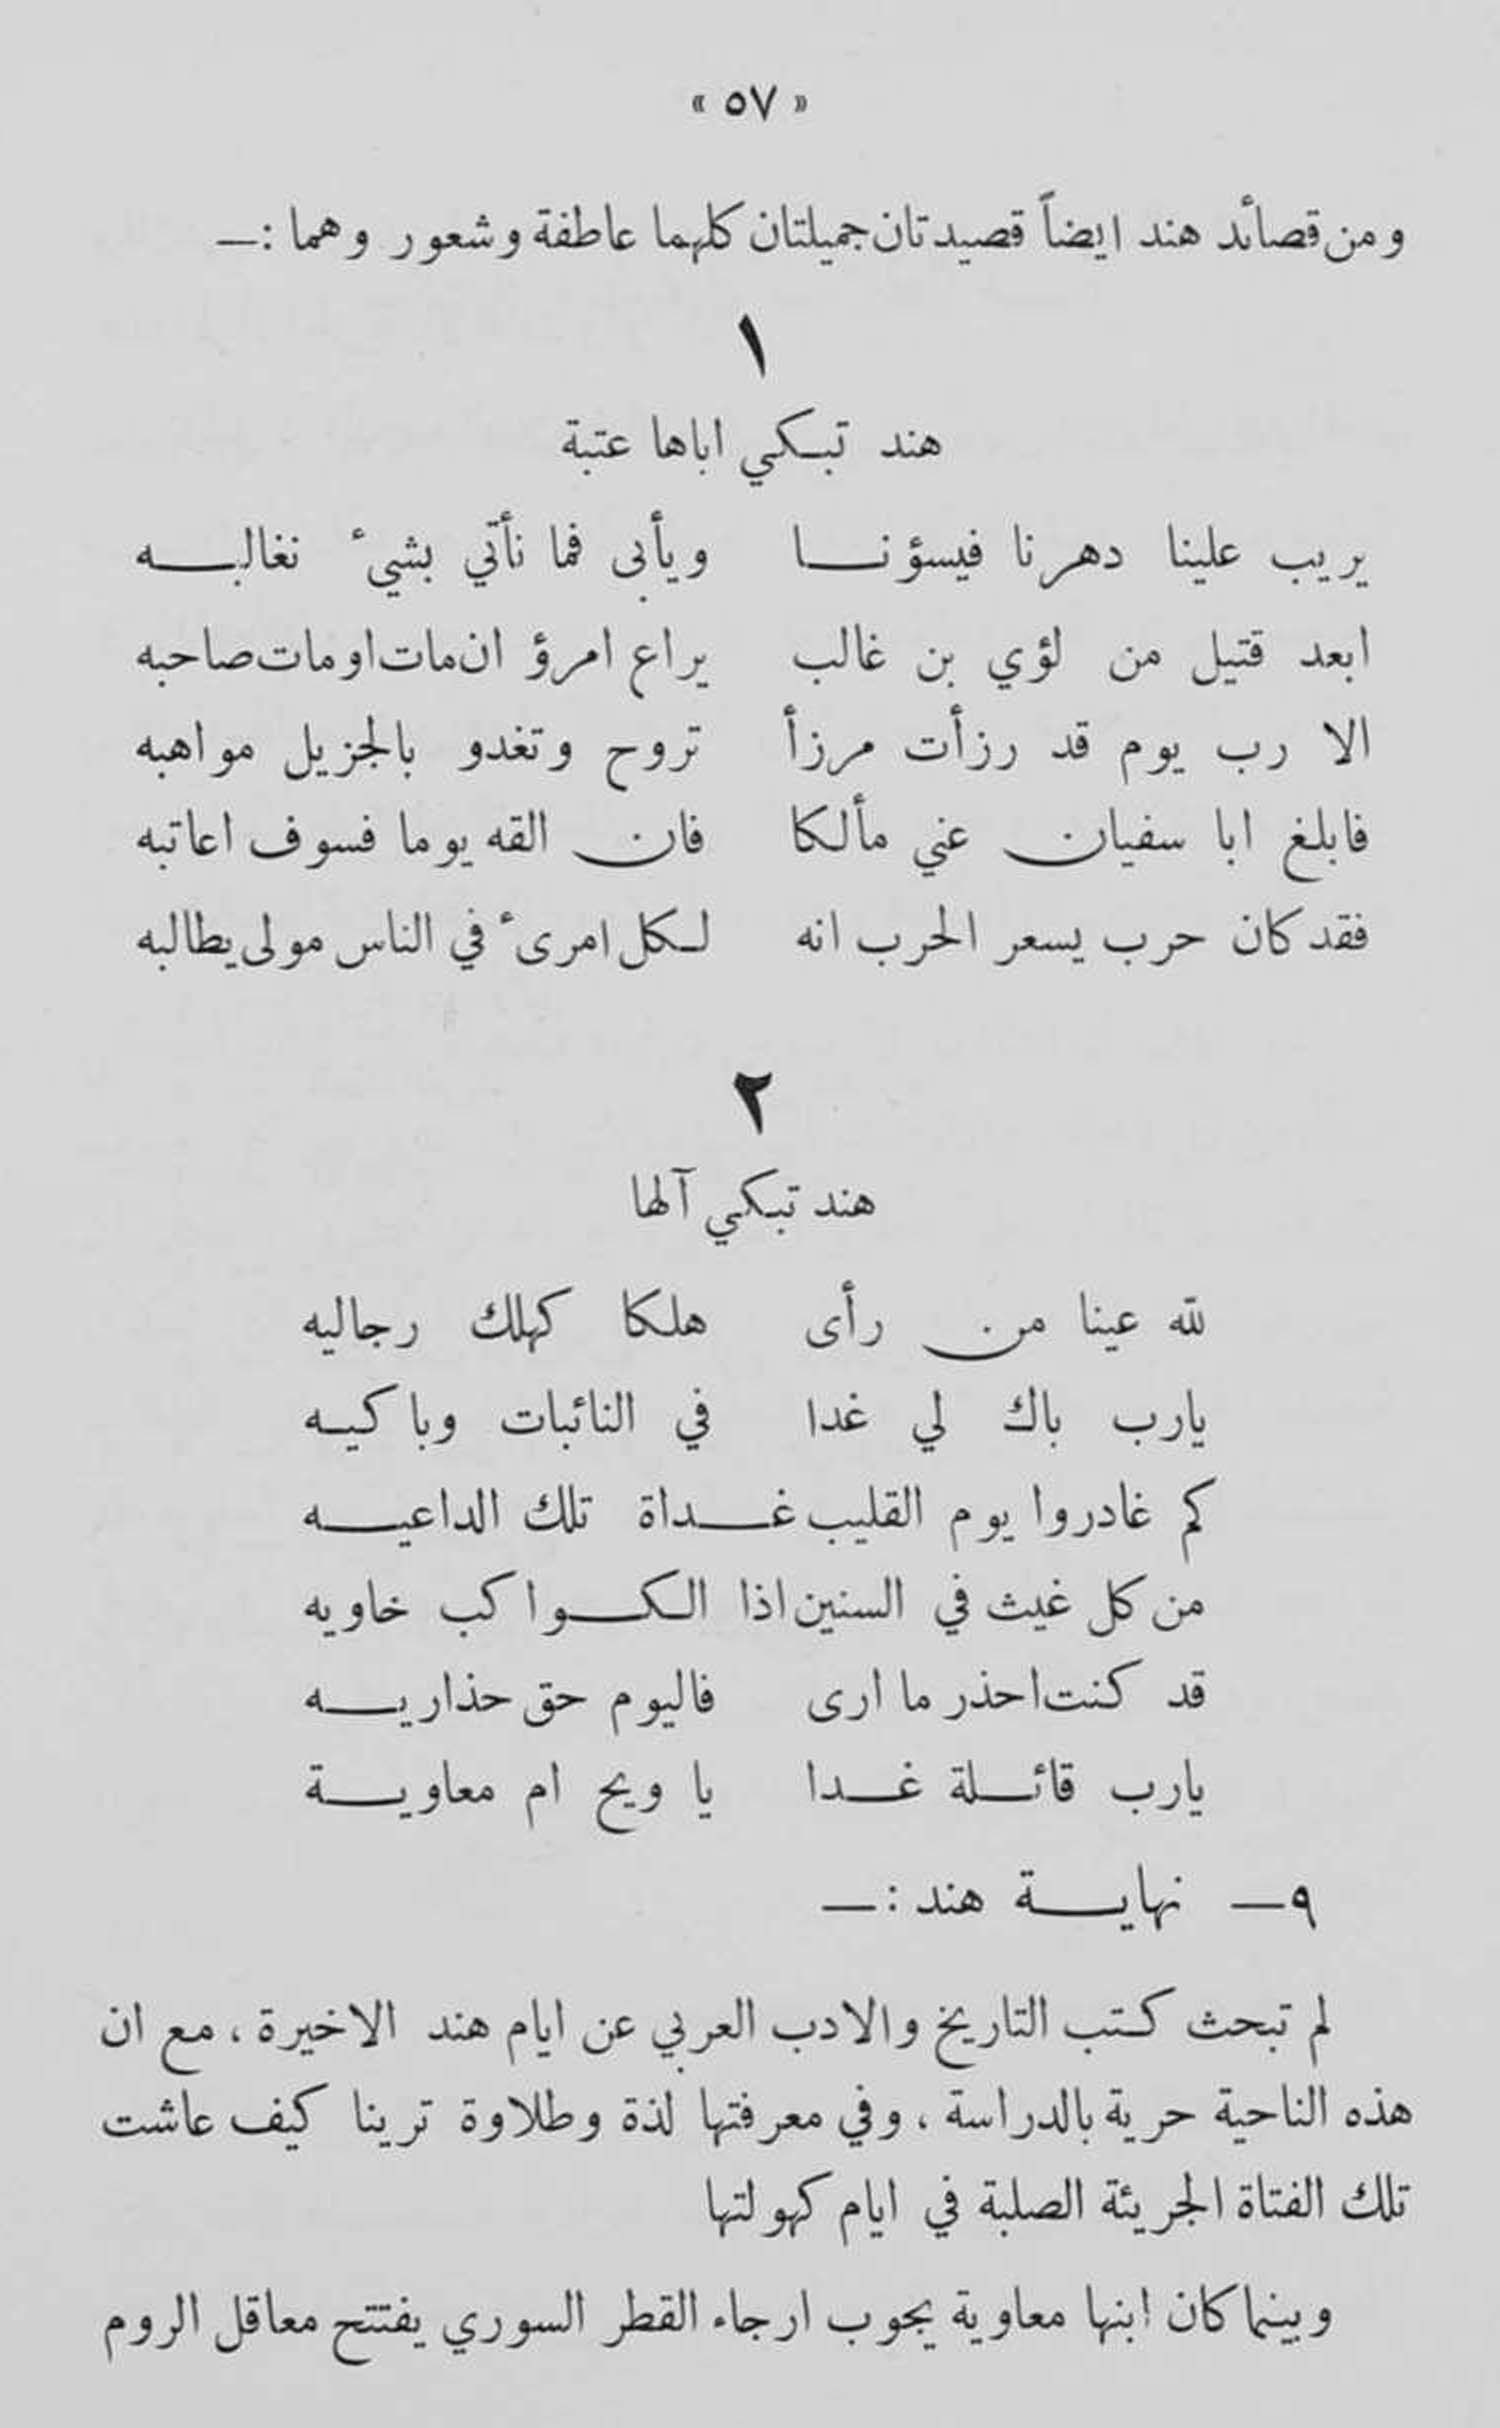 « ٥٧ »
ومن قصائد هند ايضاً قصيدتان جميلتان كلهما عاطفة وشعور وهما :—
١
هند تبكي اباها عتبة
يريب علينا دهرنا فيسؤنا ويأبى فما نأتي بشيء نغالبه
ابعد قتيل من لؤي بن غالب يراع امرؤ ان مات او مات صاحبه
الا رب يوم قد رزأت مرزأ تروح وتغدو بالجزيل مواهبه
فابلغ ابا سفيان عني مألكا فان القه يوما فسوف اعاتبه
فقد كان حرب يسعر الحرب انه لكل امرىء في الناس مولى يطالبه
٢
هند تبكي آلها
لله عينا من رأى هلكا كهلك رجاليه
يارب باك لي غدا في النائبات وباكيه
كم غادروا يوم القليب غداة تلك الداعيه
من كل غيث في السنين اذا الكواكب خاويه
قد كنت احذر ما ارى فاليوم حق حذاريه
يارب قائلة غدا يا ويح ام معاوية
٩— نهاية هند :—
لم تبحث كتب التاريخ والادب العربي عن ايام هند الاخيرة ، مع ان
هذه الناحية حرية بالدراسة ، وفي معرفتها لذة وطلاوة ترينا كيف عاشت
تلك الفتاة الجريئة الصلبة في ايام كهولتها
وبينما كان ابنها معاوية يجوب ارجاء القطر السوري يفتتح معاقل الروم